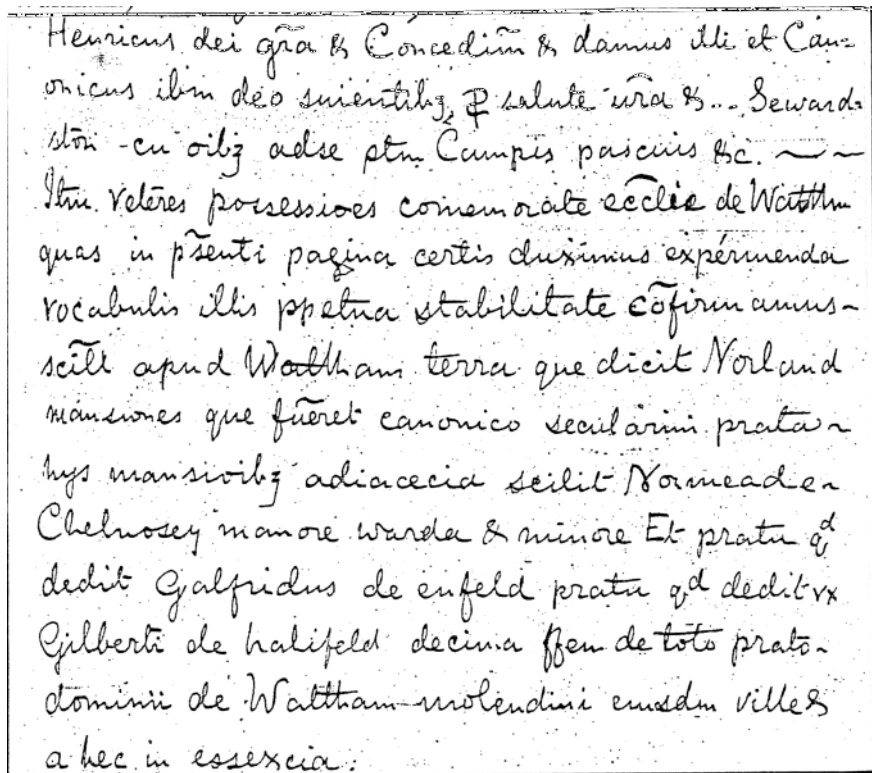 Henricus dei gr̃a & Concedim̃ & damus illi et Can=
onicus ibm deo suientibꝫ ꝓ salute ur̃a & ... Seward=
ston - cu oibꝫ adse ptm Campis pascuis &c.
Itm. Veteres possessioes comemorate ecclie de Waltham
quas in p̃senti pagina certis duximus expermenda
vocabulis illis ppetua stabilitate cõfirmamus -
scilt apud Waltham terra que dicit Norland
mansiones que fueret canonico secularim prata -
hys mansioibꝫ adiacecia scilit Normeade -
Chelnosey manore warda & minore Et pratu qd
dedit Galfridus de enfeld pratu qd dedit vx
Gilberti de halifeld decima ffem de toto prato -
dominii de Waltham molendini eiusdm ville &
a hec in essexcia.